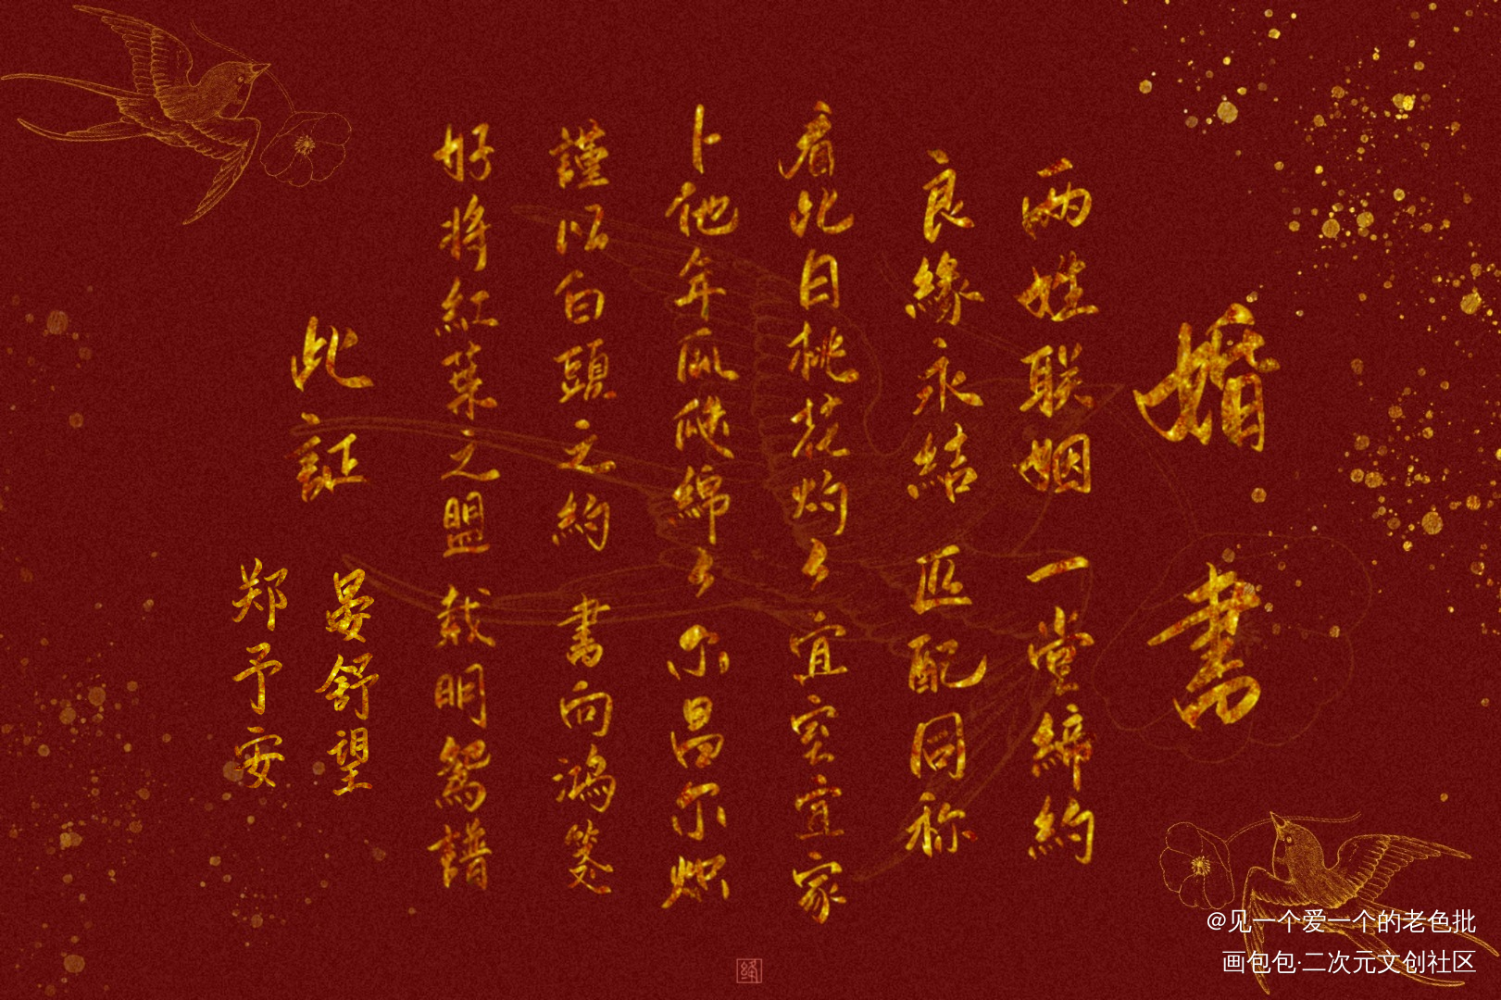 婚書
两姓联姻 一堂締約
良緣永结 匹配同称
看此日桃花灼々 宜室宜家
卜他年瓜瓞綿々 尔昌尔炽
謹以白頭之約 書向鴻笺
好将紅葉之盟 载明鸳譜
此証
晏舒望
郑予安
@见一个爱一个的老色批
画包包·二次元文创社区